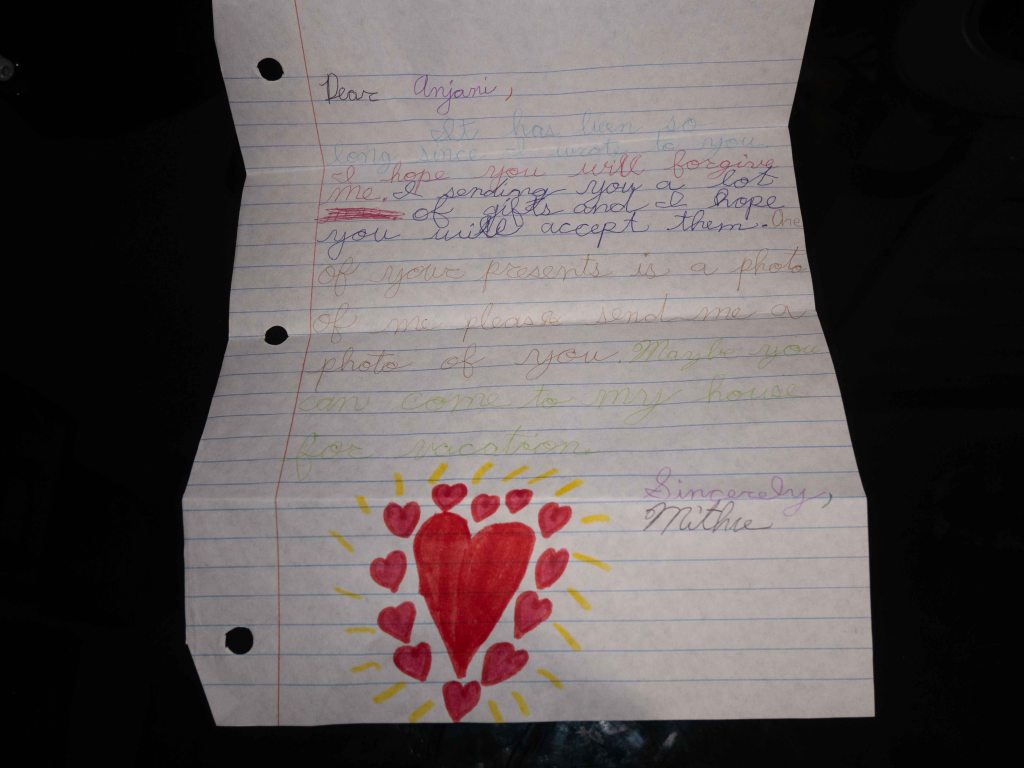 Dear Anjani,
It has been so
long since I wrote to you
I hope you will forgive
me. I sending you a lot
of gifts and I hope
you will accept them. One
of your presents is a photo
of me please send me a
photo of you. Maybe you
can come to my house
for vacation.
Sincerely,
Mithue